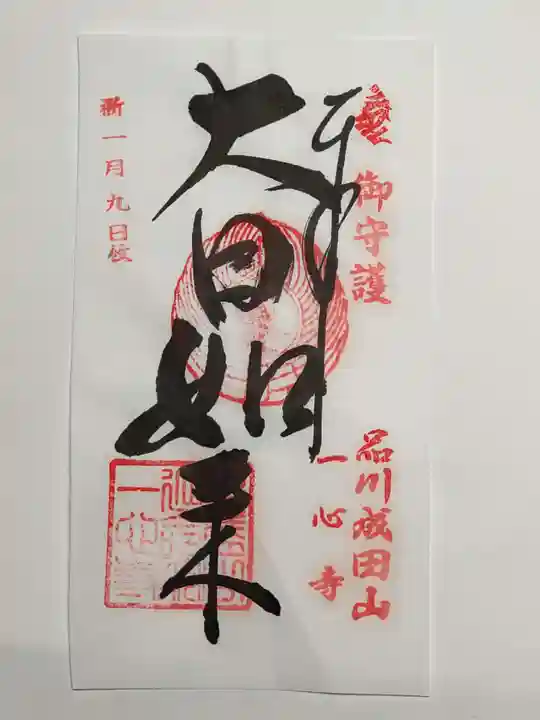 御守護
品川成田山
一心寺
奉拝
大日如来
新一月九日仗